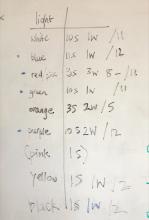 light
white 10s 1w /11
blue 11s 1w /12
green 10s 1w /11
orange 3s 2w /5
purple 10s 2w /12
(pink 1s)
yellow 1s 1w /2
black 1s 1w /2